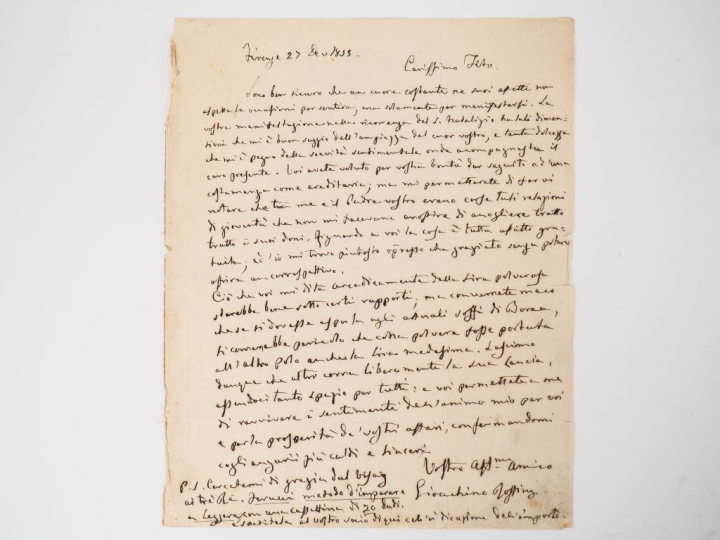 Firenze 27 Dec 1853.
Carissimo Tito.
Sono ben sicuro che un cuore costante ne suoi affetti non
aspetta le occasioni per sentire, ma solamente per manifestarsi. La
vostra manifestazione nella ricorrenza del S. Natalizio ha tali dimen-
sioni che mi è buon saggio dell'ampiezza del cuor vostro, e tanta dolcezza
che mi è pegno della soavità sentimentale onde accompagnaste il
caro presente. Voi avete voluto per vostra bontà dar seguito ad una
costumanza come ereditaria; ma mi permetterete di farvi
notare che tra me e il Padre vostro erano corse tali relazioni
di gioventù che non mi facevano arrossire di accogliere tratto
tratto i suoi doni. Riguardo a voi la cosa è tutta affatto gra-
tuita; ed io mi trovo piuttosto oppresso che graziato senza potere
offrire un corrispettivo.
Ciò che voi mi dite arcadicamente della Lira polverosa
starebbe bene sotto certi rapporti; ma converrete meco
che se si dovesse esporla agli attuali soffi di Borea,
si correrebbe pericolo che colla polvere fosse portata
all'altro Polo anche la Lira medesima. Lasciamo
dunque che altri corra liberamente la sua Lancia,
essendoci tanto spazio per tutti: e voi permettete a me
di ravvivare i sentimenti dell'animo mio per voi
e per la prosperità de' vostri affari, confermandomi
cogli augurii più caldi e sinceri
Vostro Aff.mo Amico
Gioachino Rossini
P.S. Cercatemi di grazia dal
ai tre Re. metodo d'imparare
a Leggere con una cassettina di 70 dadi.
al vostro socio di qui di cagione dell'importo.